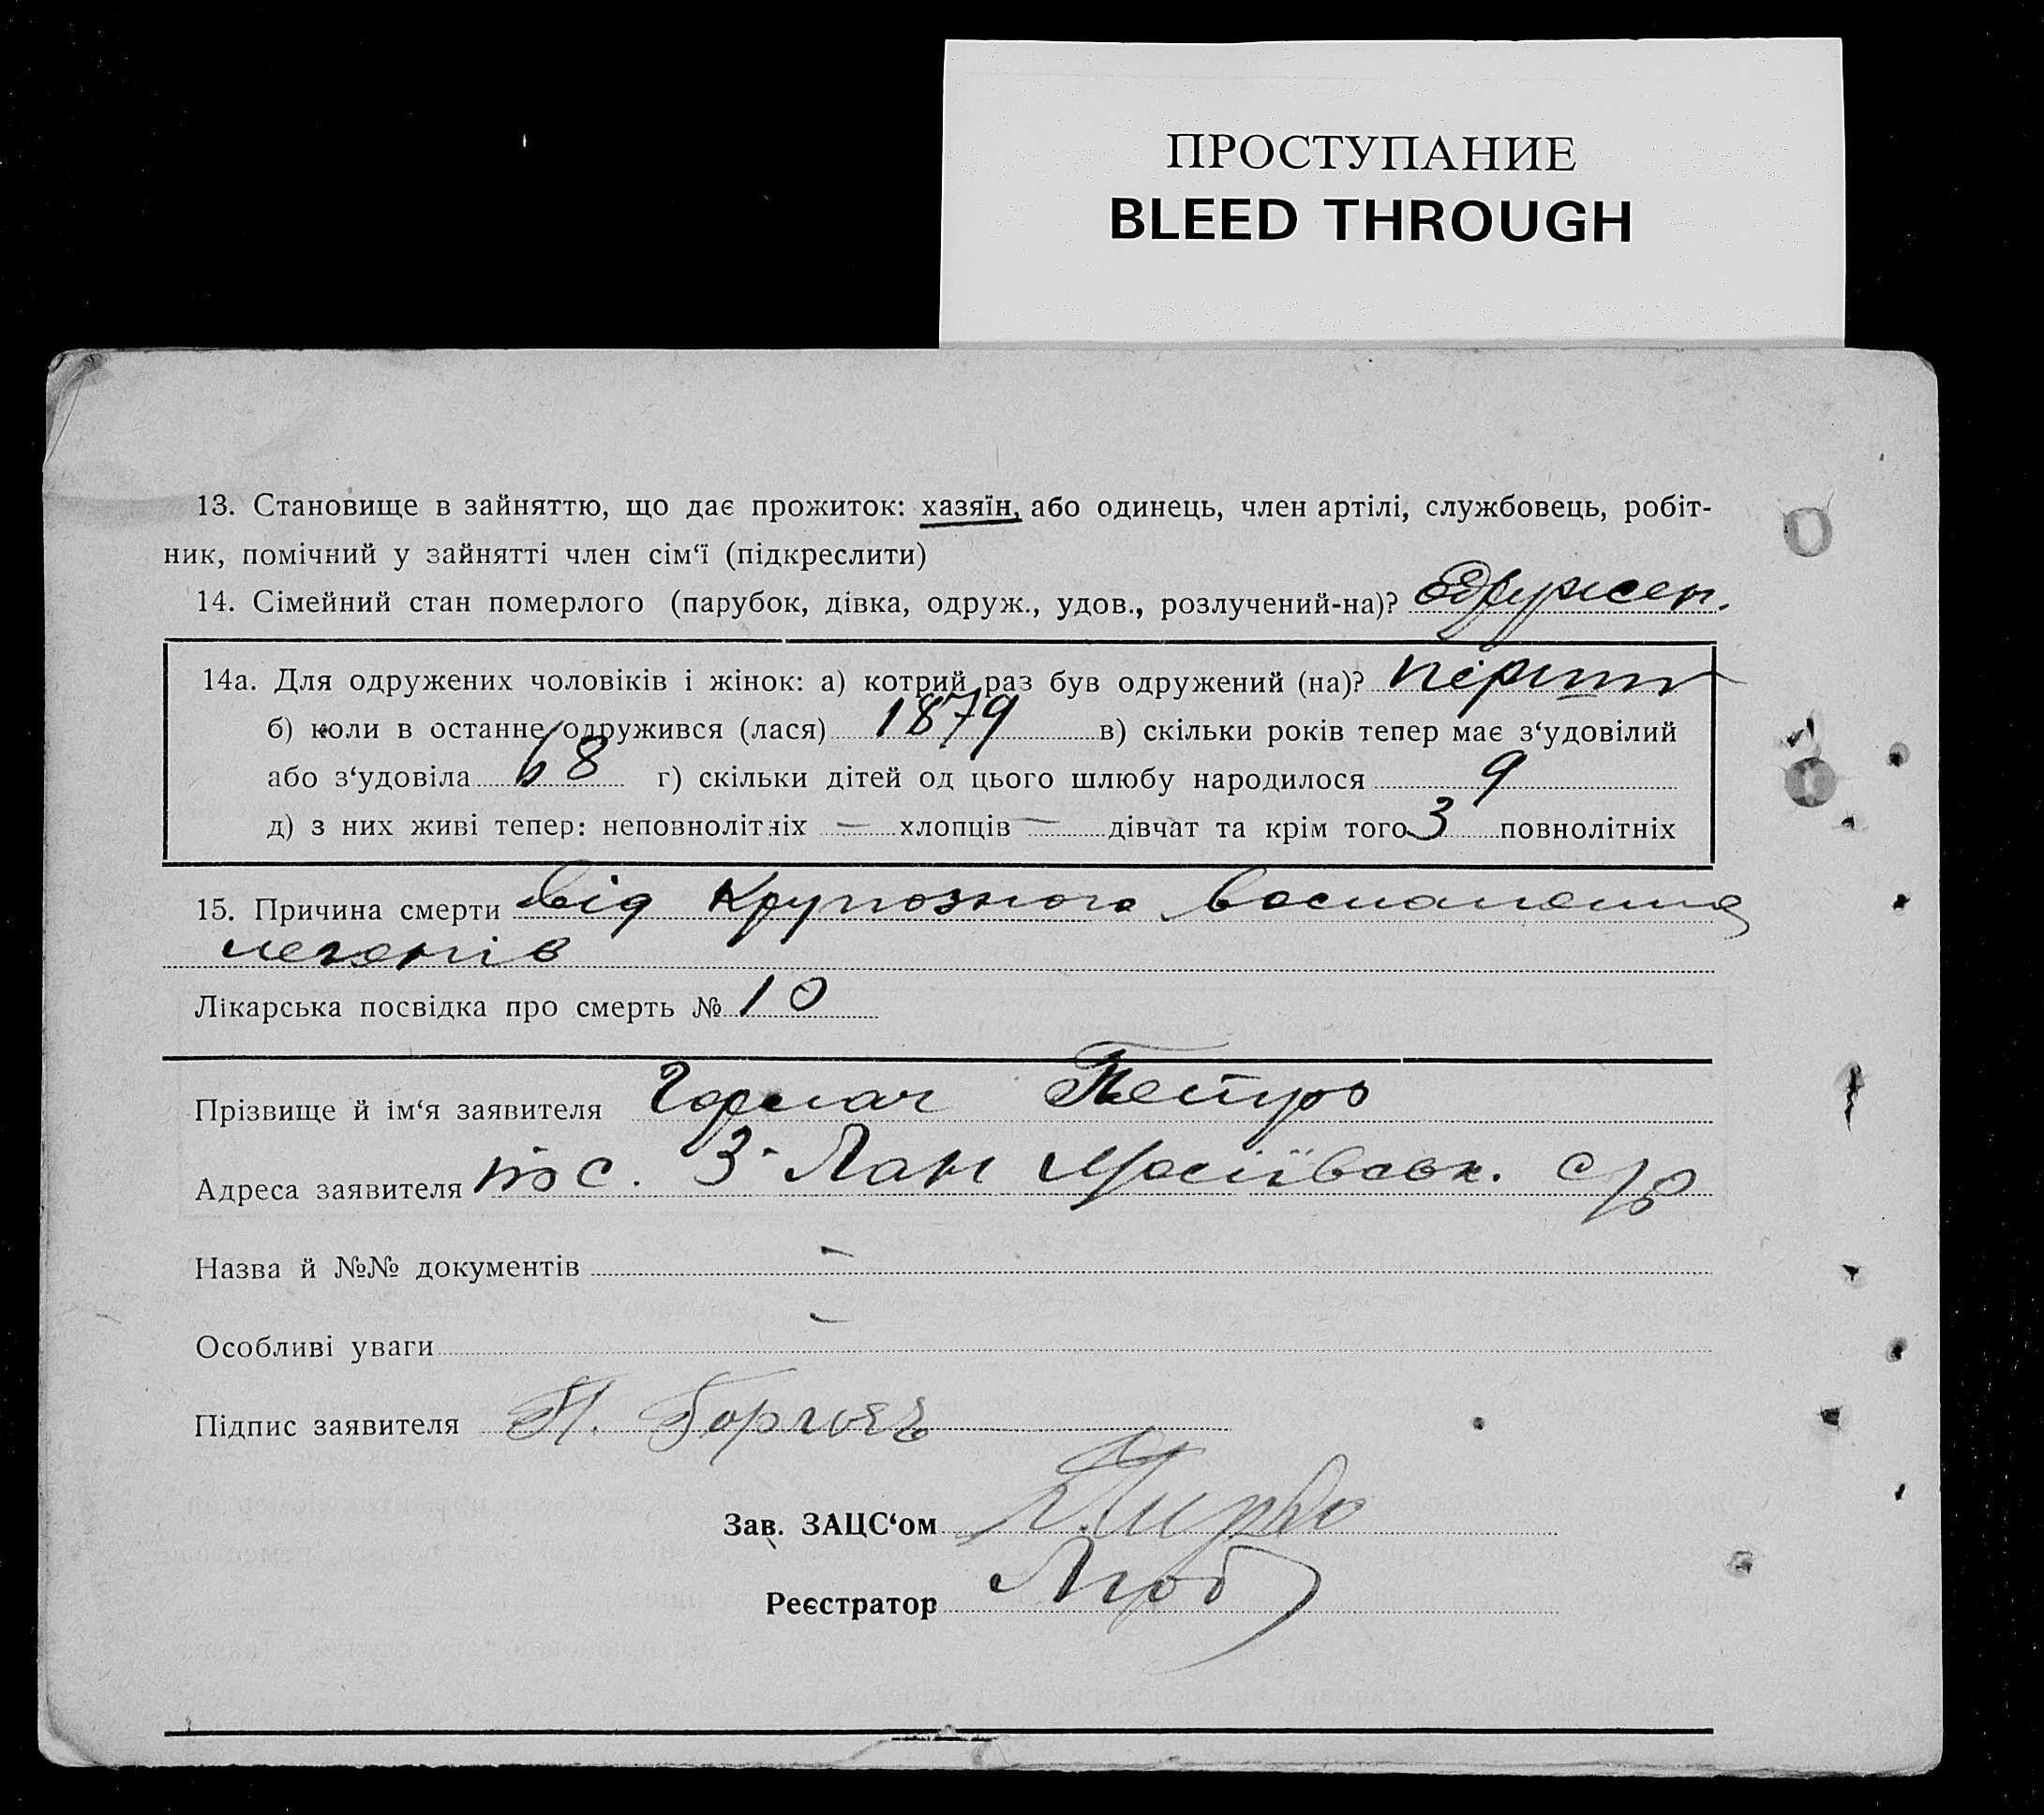 ПРОСТУПАНИЕ
BLEED THROUGH
13. Становище в зайняттю, що дає прожиток: хазяїн, або одинець, член артілі, службовець, робіт-
ник, помічний у зайнятті член сім‘ї (підкреслити)
14. Сімейний стан померлого (парубок, дівка, одруж., удов., розлучений-на)? Одружен.
14а. Для одружених чоловіків і жінок: а) котрий раз був одружений (на)?
б) коли в останнє одружився (лася) 1879 в) скільки років тепер має з‘удовілий
або з‘удовіла 68 г) скільки дітей од цього шлюбу народилося 9
д) з них живі тепер: неповнолітніх — хлопців — дівчат та крім того 3 повнолітніх
15. Причина смерти від Крупозного воспаления
легенів
Лікарська посвідка про смерть № 10
Прізвище й ім‘я заявителя Петро
Адреса заявителя с/р
Назва й №№ документів —
Особливі уваги —
Підпис заявителя П.
Зав. ЗАЦС‘ом
Реєстратор